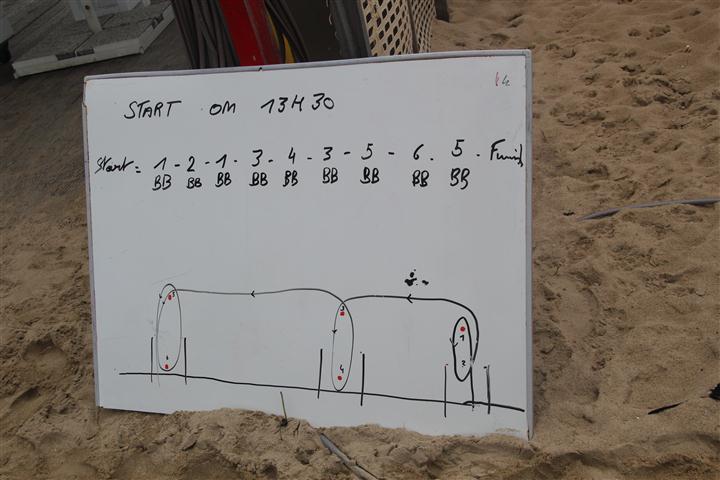 START OM 13H30
Start = 1 - 2 - 1 - 3 - 4 - 3 - 5 - 6 . 5 . Finish
BB BB BB BB BB BB BB BB BB
5
3
1
2
4
6